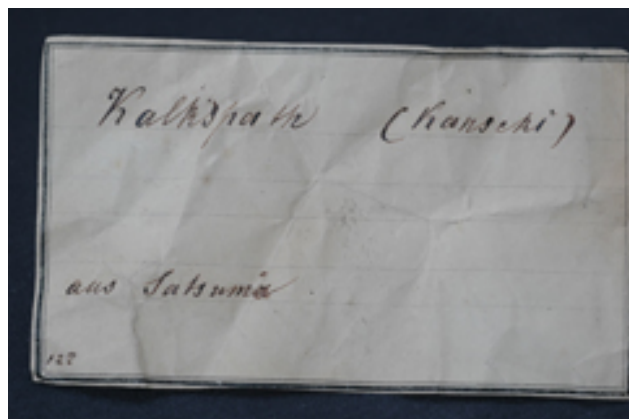 Kalkspath (Kanseki)
aus Satsuma